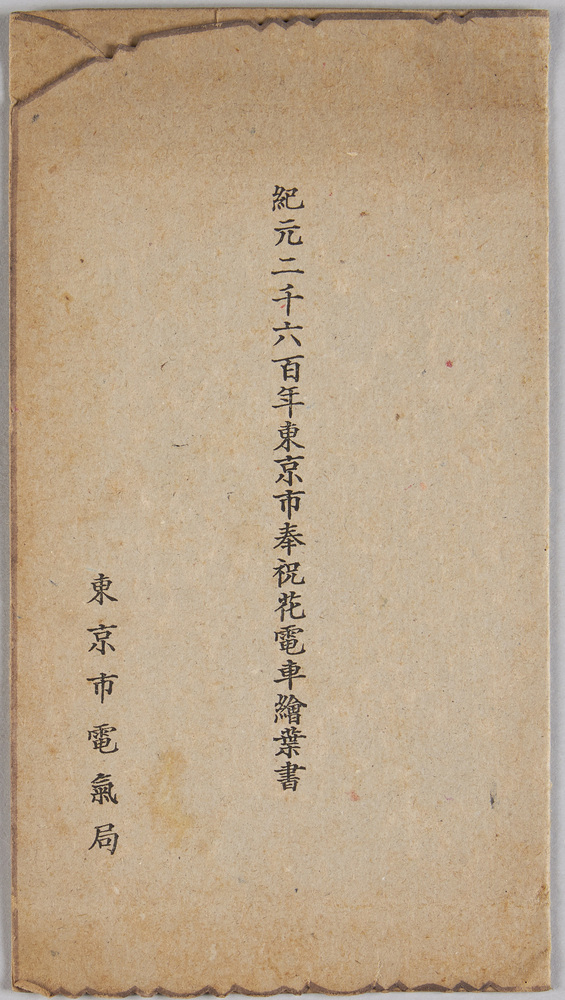 紀元二千六百年東京市奉祝花電車繪葉書
東京市電氣局